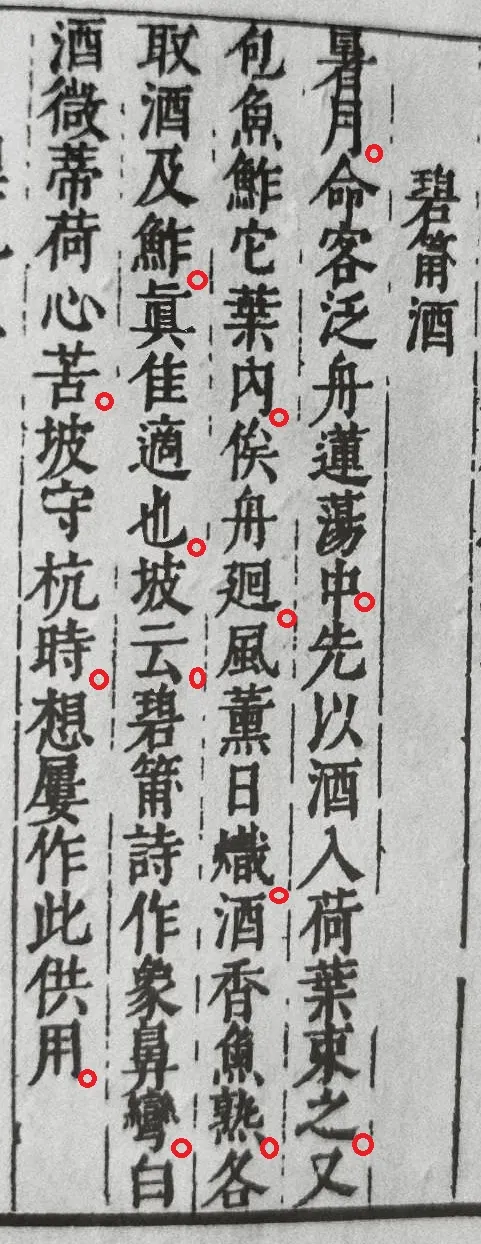 碧筩酒
暑月命客泛舟蓮蕩中先以酒入荷葉束之又
包魚鮓它葉內俟舟廻風薰日熾酒香魚熟各
取酒及鮓眞佳適也坡云碧筩詩作象鼻彎白
酒微蒂荷心苦坡守杭時想屢作此供用